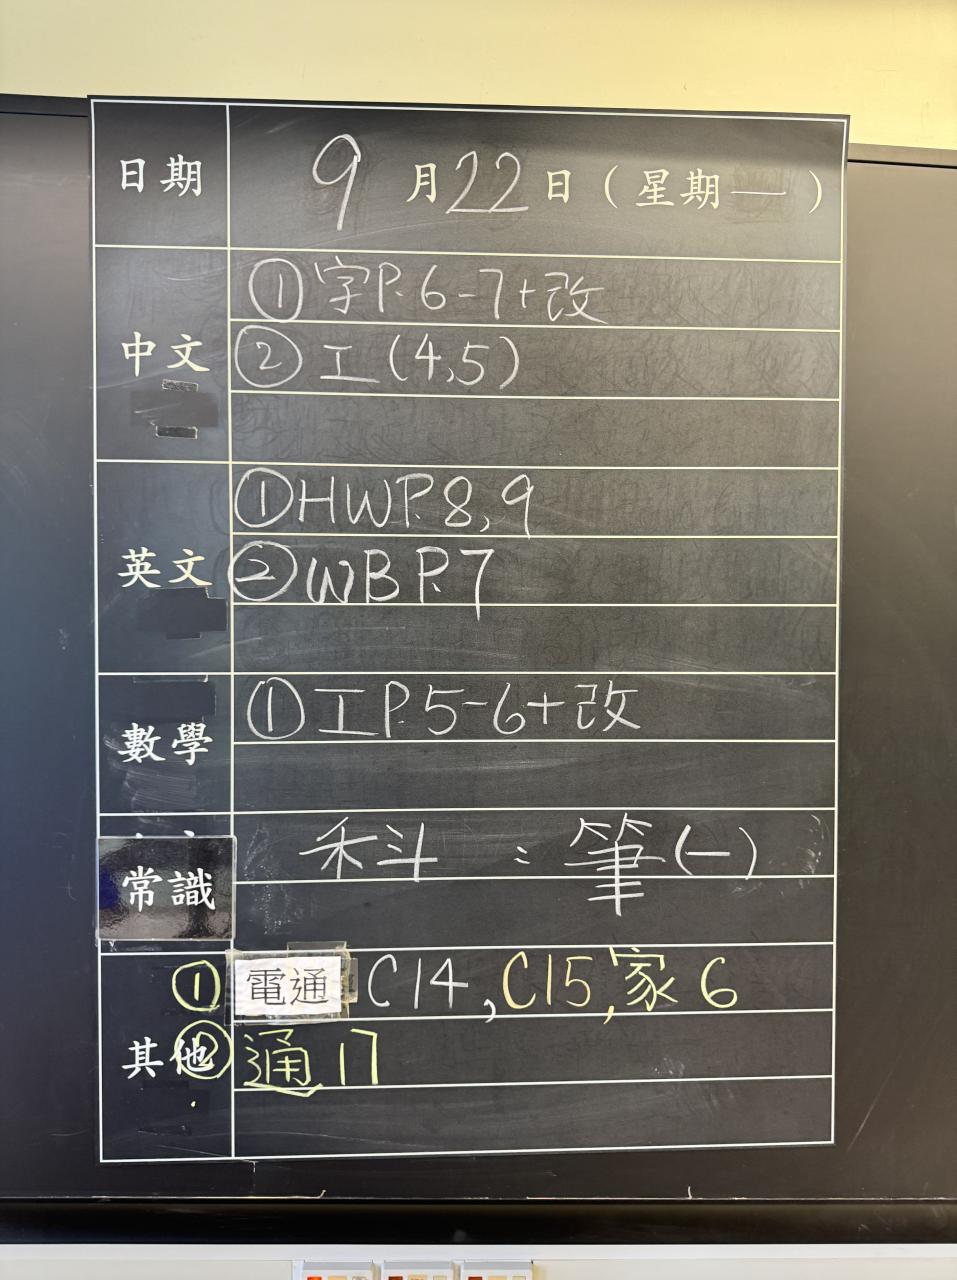 日期 9 月 22 日 ( 星期 一 )
中文 ① 字P.6-7+改
② 工 (4,5)
英文 ① HWP.8,9
② WB P.7
數學 ① 工P.5-6+改
常識 科 : 筆(一)
其他 ① 電通 C14, C15, 家 6
② 通 17